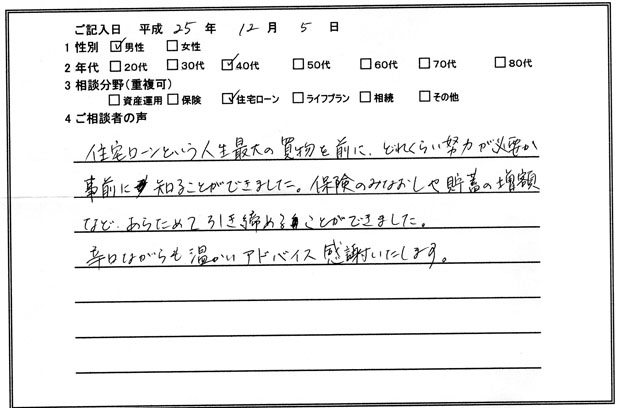 ご記入日 平成 25 年 12 月 5 日
1 性別 ☑男性 □女性
2 年代 □20代 □30代 ☑40代 □50代 □60代 □70代 □80代
3 相談分野(重複可)
□資産運用 □保険 ☑住宅ローン □ライフプラン □相続 □その他
4 ご相談者の声
住宅ローンという人生最大の買物を前に、どれくらい努力が必要か
事前に知ることができました。保険のみなおしや貯蓄の増額
など、あらためて引き締めることができました。
辛口ながらも温かいアドバイス感謝いたします。